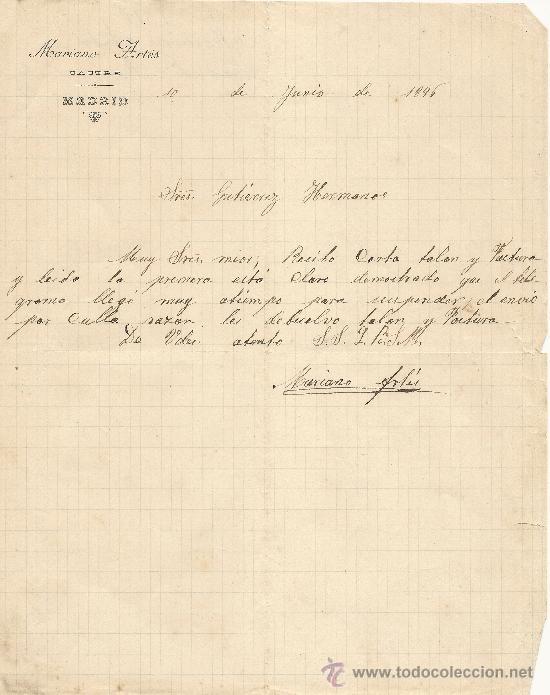 Mariano Artés
MADRID
10 de Junio de 1896
Sres. Gutiérrez Hermanos
Muy Sres. mios; Recibo Carta talon y Factura
y leida la primera está claro demostrado que el tele
grama llegó muy atiempo para suspender el envio
por cullla razon les debuelvo talon y Factura.
De Vdes. atento S.S.Q.B.S.M.
Mariano Artés
www.todocoleccion.net